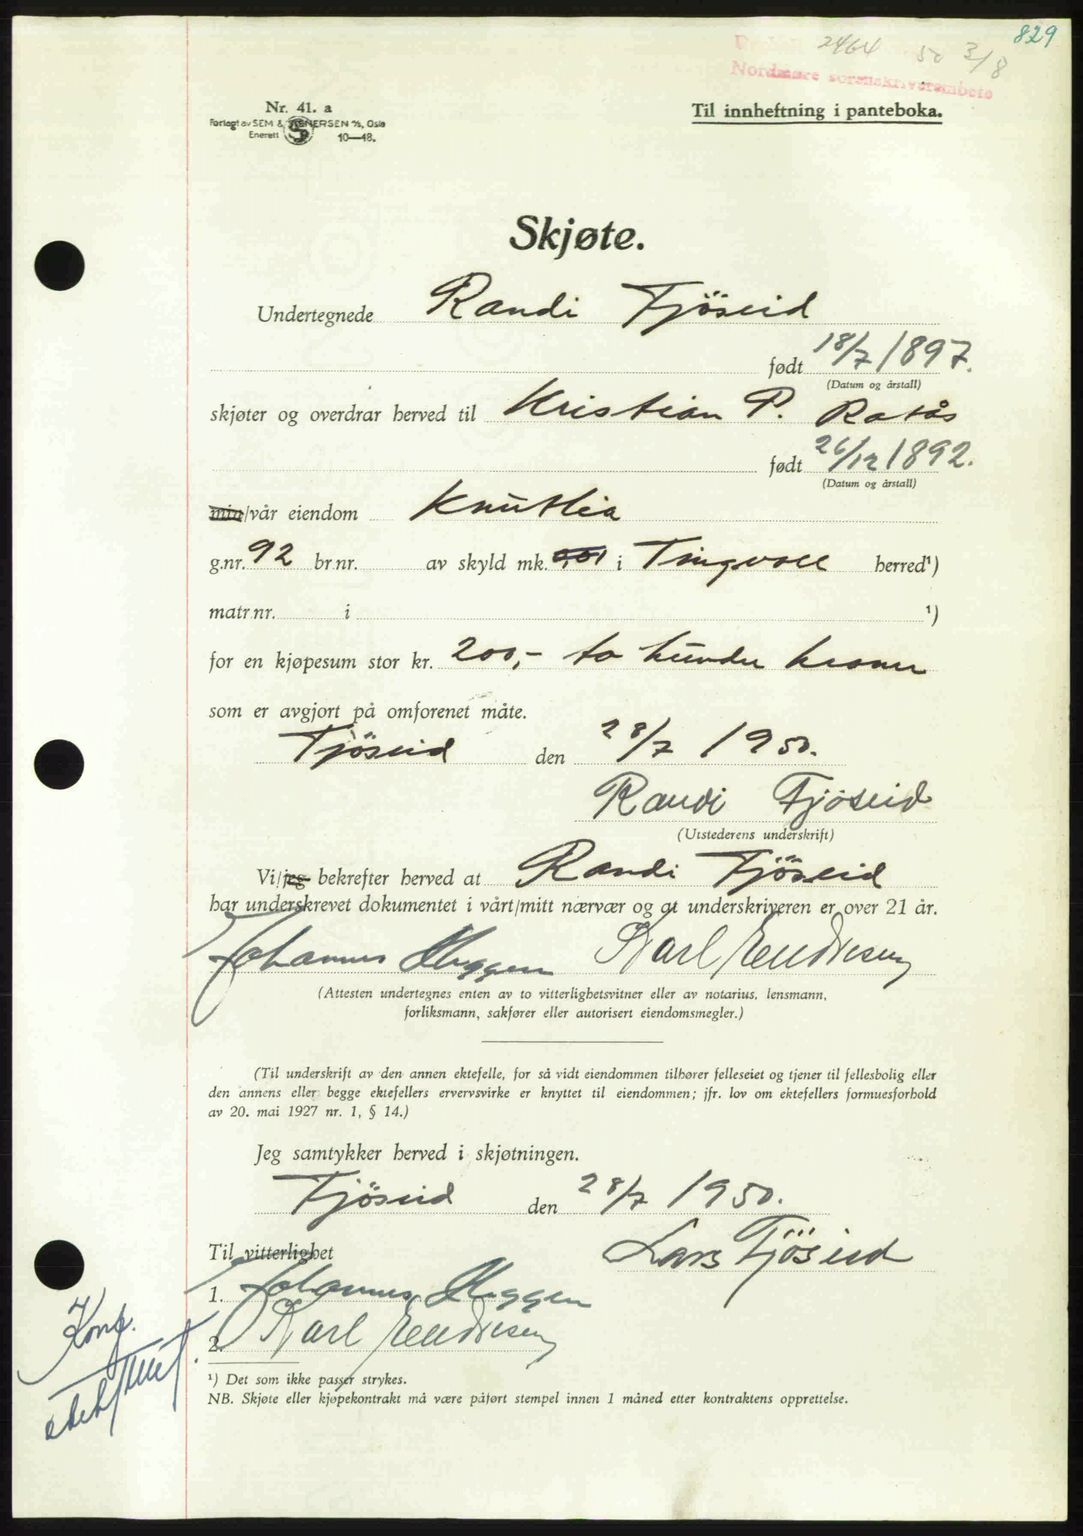 829
2464 50 3/8
Nordmøre sorenskriverembete
Nr. 41. a
Forlagt av SEM & STENERSEN A/S, Oslo
Enerett 10—48.
Til innheftning i panteboka.
Skjøte.
Undertegnede Randi Tjöseid
født 18/7 1897.
(Datum og årstall)
skjøter og overdrar herved til Kristian P. Rotås
født 26/12 1892.
(Datum og årstall)
min/vår eiendom Knutlia
g.nr. 92 br.nr. av skyld mk. 0,01 i Tingvoll herred¹)
matr.nr. i ¹)
for en kjøpesum stor kr. 200,- to hundre kroner
som er avgjort på omforenet måte.
Tjöseid den 28/7 1950.
Randi Tjöseid
(Utstederens underskrift)
Vi/jeg bekrefter herved at Randi Tjöseid
har underskrevet dokumentet i vårt/mitt nærvær og at underskriveren er over 21 år.
Johannes Heggem Karl Endresen
(Attesten undertegnes enten av to vitterlighetsvitner eller av notarius, lensmann,
forliksmann, sakfører eller autorisert eiendomsmegler.)
(Til underskrift av den annen ektefelle, for så vidt eiendommen tilhører felleseiet og tjener til fellesbolig eller
den annens eller begge ektefellers ervervsvirke er knyttet til eiendommen; jfr. lov om ektefellers formuesforhold
av 20. mai 1927 nr. 1, § 14.)
Jeg samtykker herved i skjøtningen.
Tjöseid den 28/7 1950.
Til vitterlighet Lars Tjöseid
1. Johannes Heggem
2. Karl Endresen
Konf.
¹) Det som ikke passer strykes.
NB. Skjøte eller kjøpekontrakt må være påført stempel innen 1 måned etter kontraktens opprettelse.